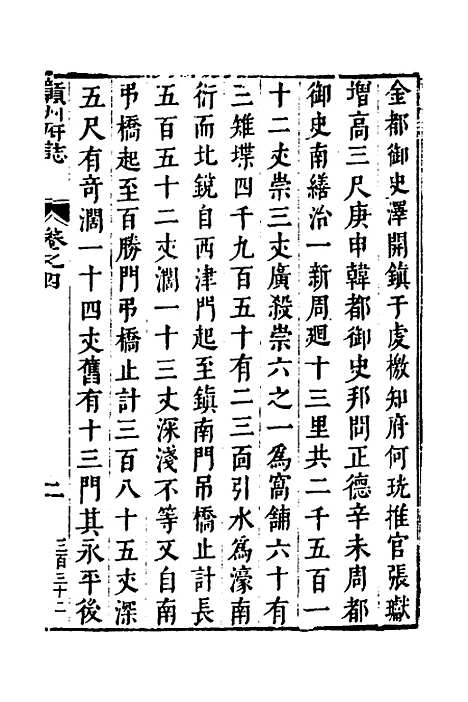 金都御史澤開鎮于虔檄知府何珖推官張獄
增高三尺庚申韓都御史邦問正德辛未周都
御史南繕治一新周廻十三里共二千五百一
十二丈崇三丈廣殺崇六之一為窩舖六十有
三雉堞四千九百五十有二三面引水為濠南
衍而北鏡自西津門起至鎮南門吊橋止計長
五百五十二丈濶一十三丈深淺不等又自南
弔橋起至百勝門弔橋止計三百八十五丈深
五尺有奇濶一十四丈舊有十三門其永平後
贛州府誌
卷之四
二
三百三十二